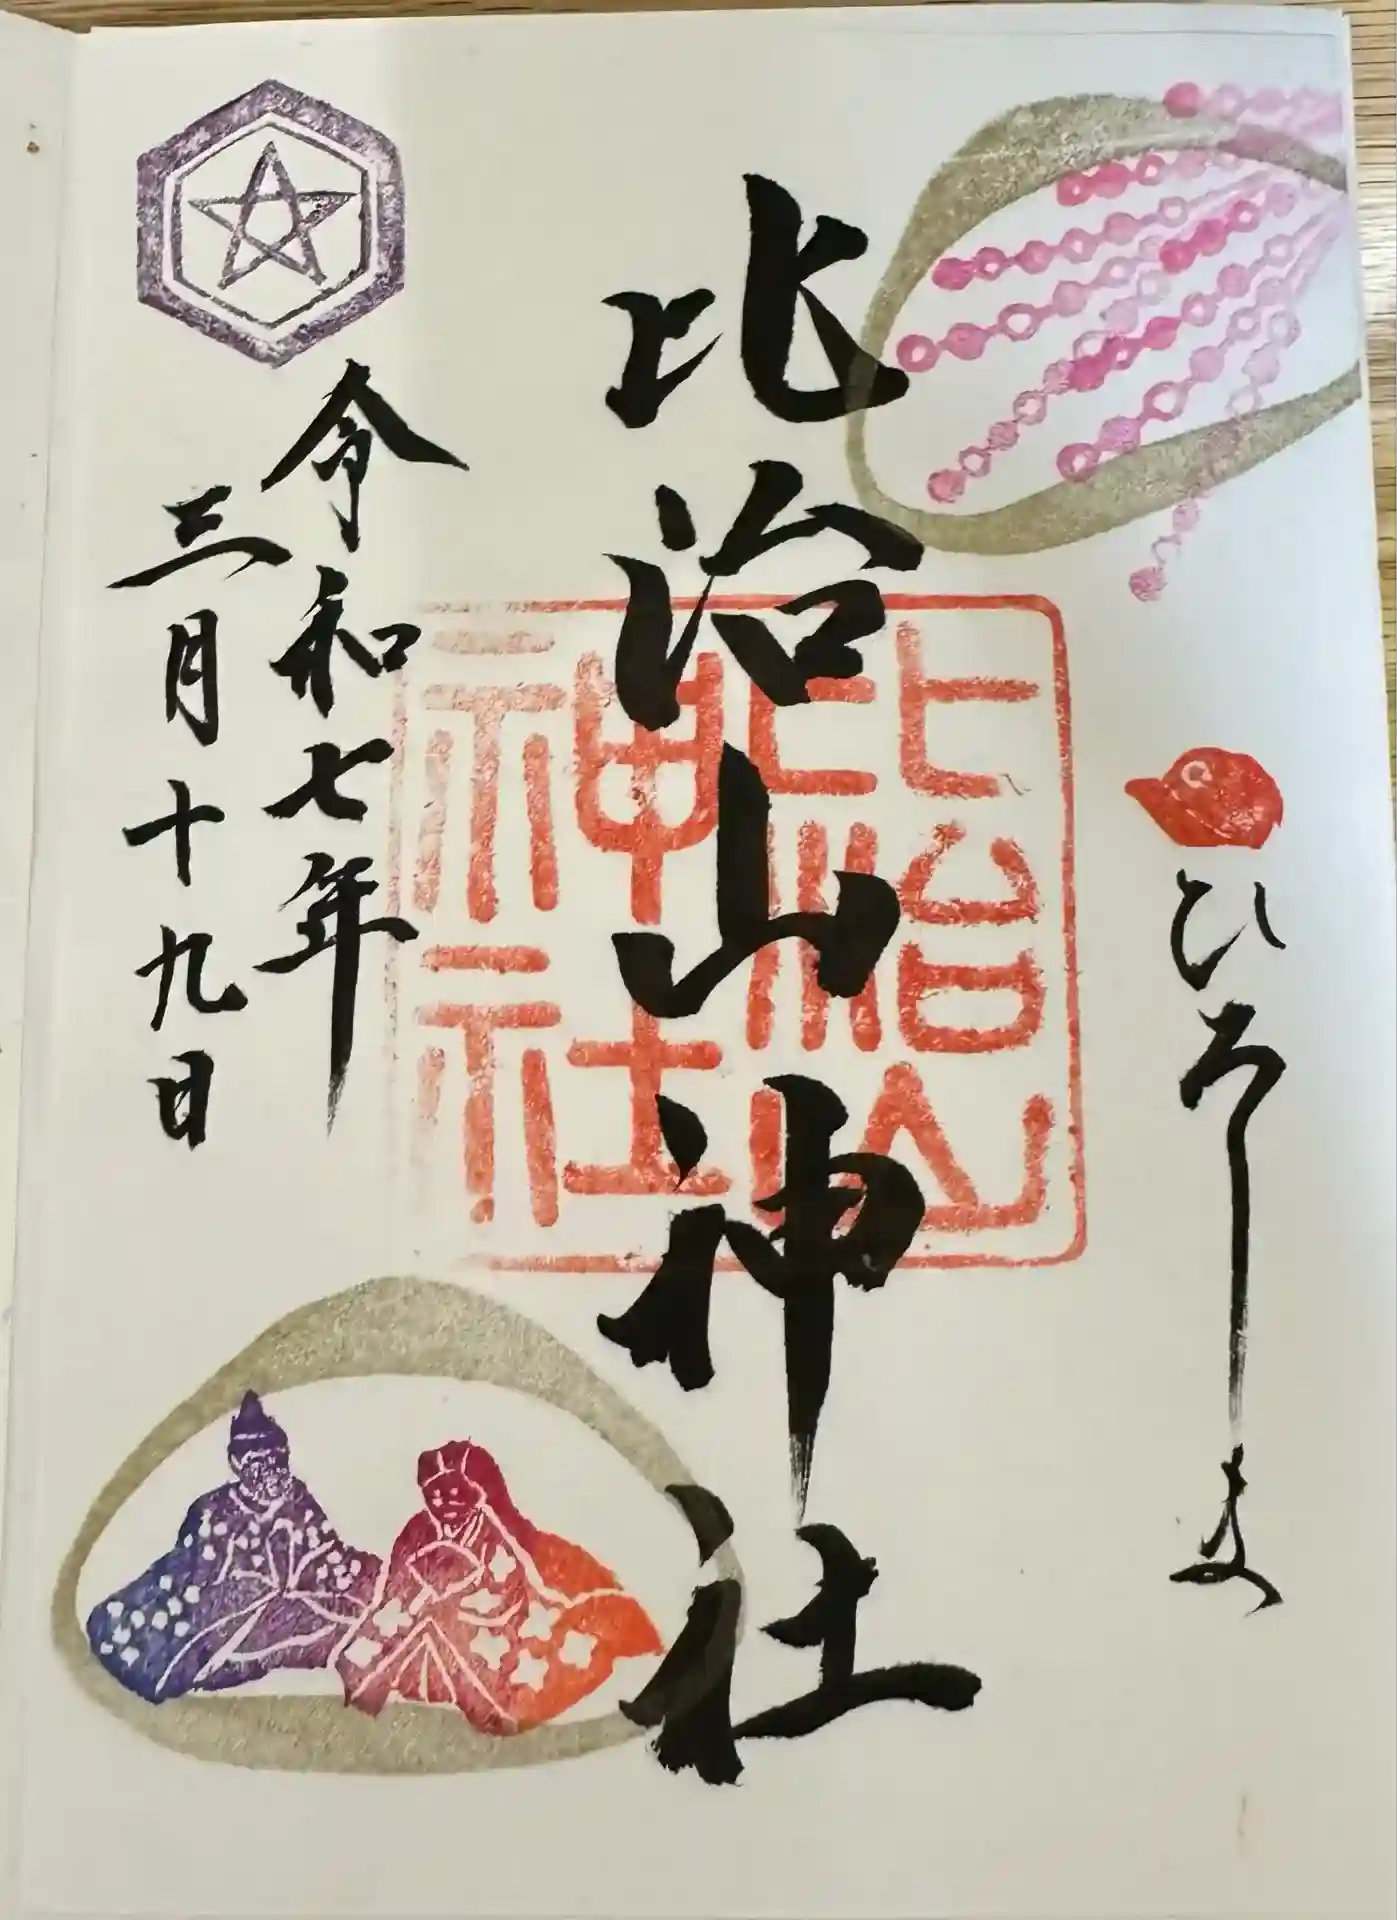 ひろしま
比治山神社
比治山神社
令和七年
三月十九日